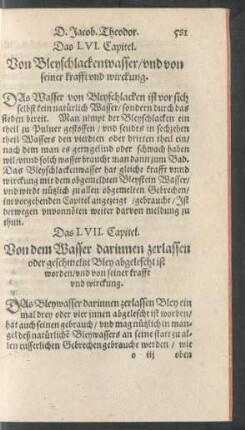 D. Jacob. Theodor. 581
Das LVI. Capitel.
Von Bleyschlackenwasser / vnd von
seiner krafft vnd wirckung.
DAs Wasser von Bleyschlacken ist vor sich
selbst kein natürlich Wasser / sondern durch das
sieden bereit. Man nimpt der Bleyschlacken ein
theil zu Puluer gestossen / vnd seudts in sechzehen
theil Wassers den vierdten oder dritten theil ein /
nach dem man es gern gelind oder schwach haben
wil / vnnd solch wasser braucht man dann zum Bad.
Das Bleyschlackenwasser hat gleiche krafft vnnd
wirckung mit dem obgemeldten Bleystein Wasser /
vnd wirdt nützlich zu allen obgemelten Gebrechen /
im vorgehenden Capitel angezeigt / gebraucht / Ist
derwegen vnvonnöten weiter darvon meldung zu
thun.
Das LVII. Capitel.
Von dem Wasser darinnen zerlassen
oder geschmeltzt Bley abgelescht ist
worden / vnd von seiner krafft
vnd wirckung.
DAs Bleywasser darinnen zerlassen Bley ein
mal drey oder vier jnnen abgelescht ist worden /
hat auch seinen gebrauch / vnd mag nützlich in man-
gel deß natürlichẽ Bleywassers an seine statt zu al-
len eusserlichen Gebrechen gebraucht werden / wie
o iij oben